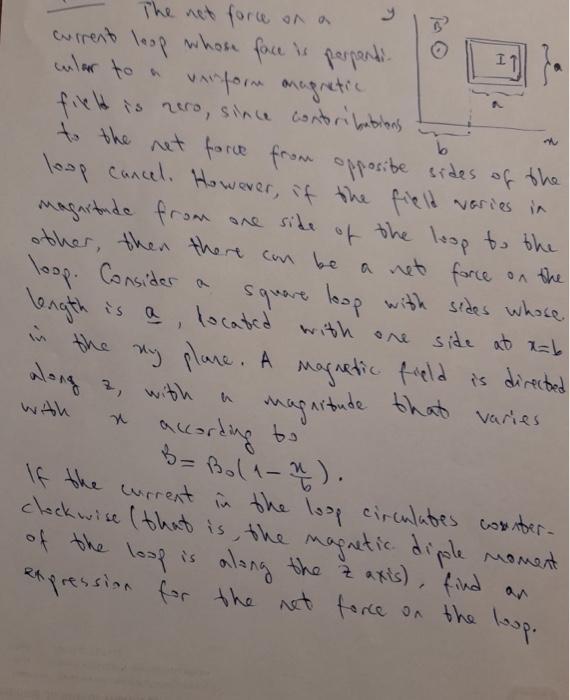 The net force on a
current loop whose face is perpendi-
cular to a uniform magnetic
field is zero, since contributions
to the net force from opposite sides of the
loop cancel. However, if the field varies in
magnitude from one side of the loop to the
other, then there can be a net force on the
loop. Consider a square loop with sides whose
length is a, located with one side at x=b
in the xy plane. A magnetic field is directed
along z, with a magnitude that varies
with x according to
B = B₀(1 - x/b).
If the current in the loop circulates counter-
clockwise (that is, the magnetic dipole moment
of the loop is along the z axis), find an
expression for the net force on the loop.
y
B⃗
I↑
a
a
b
x